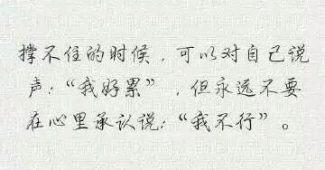 撑不住的时候，可以对自己说
声：“我好累”，但永远不要
在心里承认说：“我不行”。